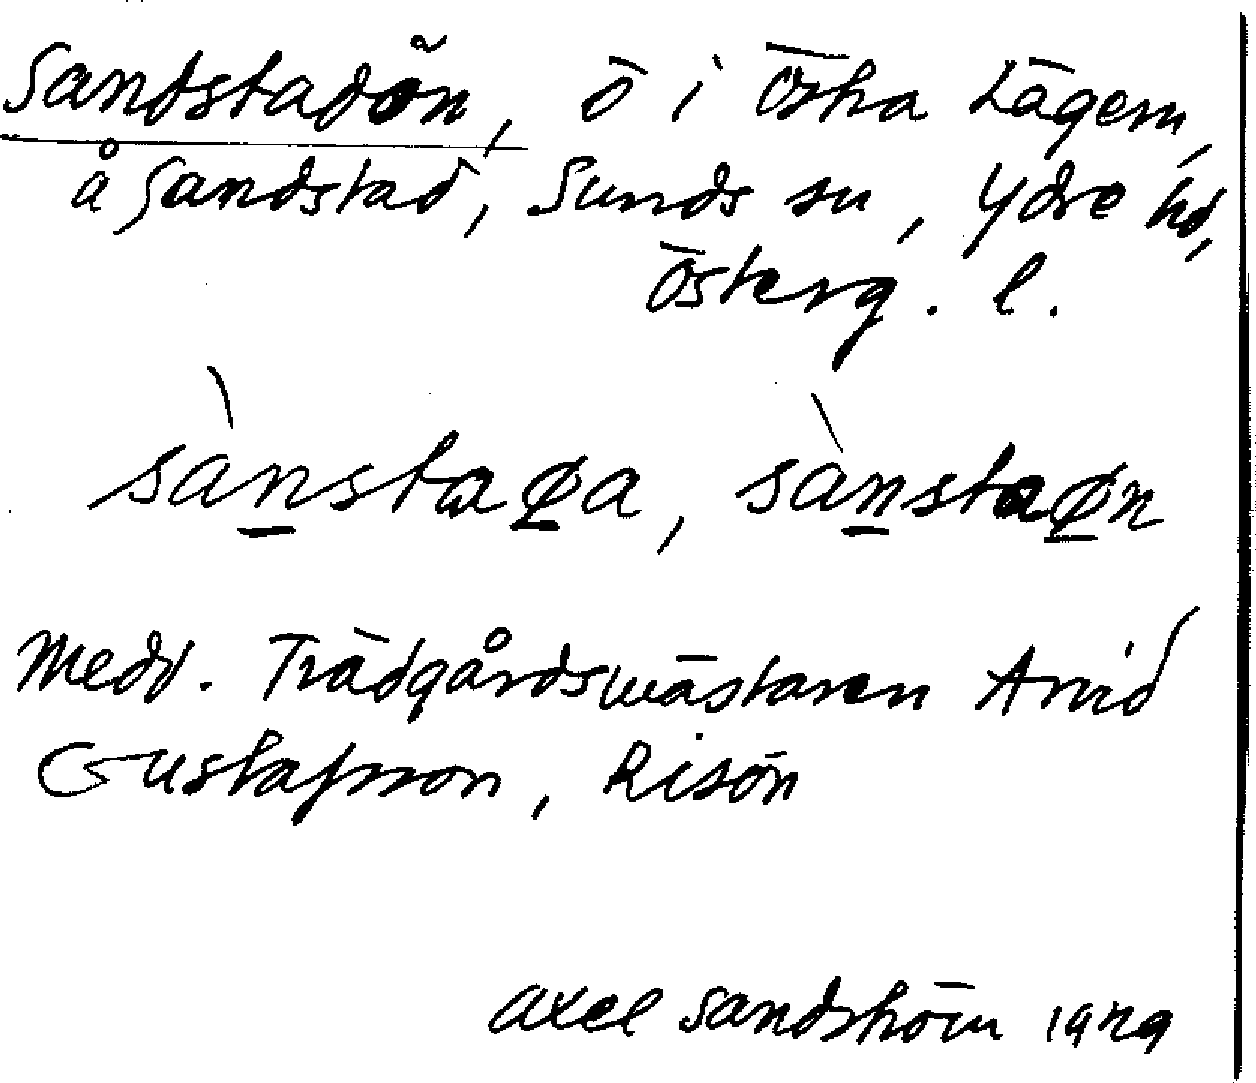 Sandstadön, ö i Östra Lägern,
å Sandstad, Sunds sn, Ydre hd,
Österg. l.
sànstaøa, sànstaøn
Medd. Trädgårdsmästaren Arvid
Gustafsson, Risön
Axel Sandström 1929